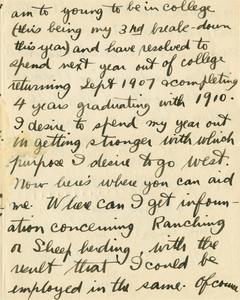 am to young to be in college
(this being my 3rd break-down
this year) and have resolved to
spend next year out of college
returning Sept 1907 & completing
4 years graduating with 1910.
I desire to spend my year out
in getting stronger with which
purpose I desire to go west.
Now here's where you can aid
me. Where can I get inform-
ation concerning Ranching
or Sheep herding, with the
result that I could be
employed in the same. Of course